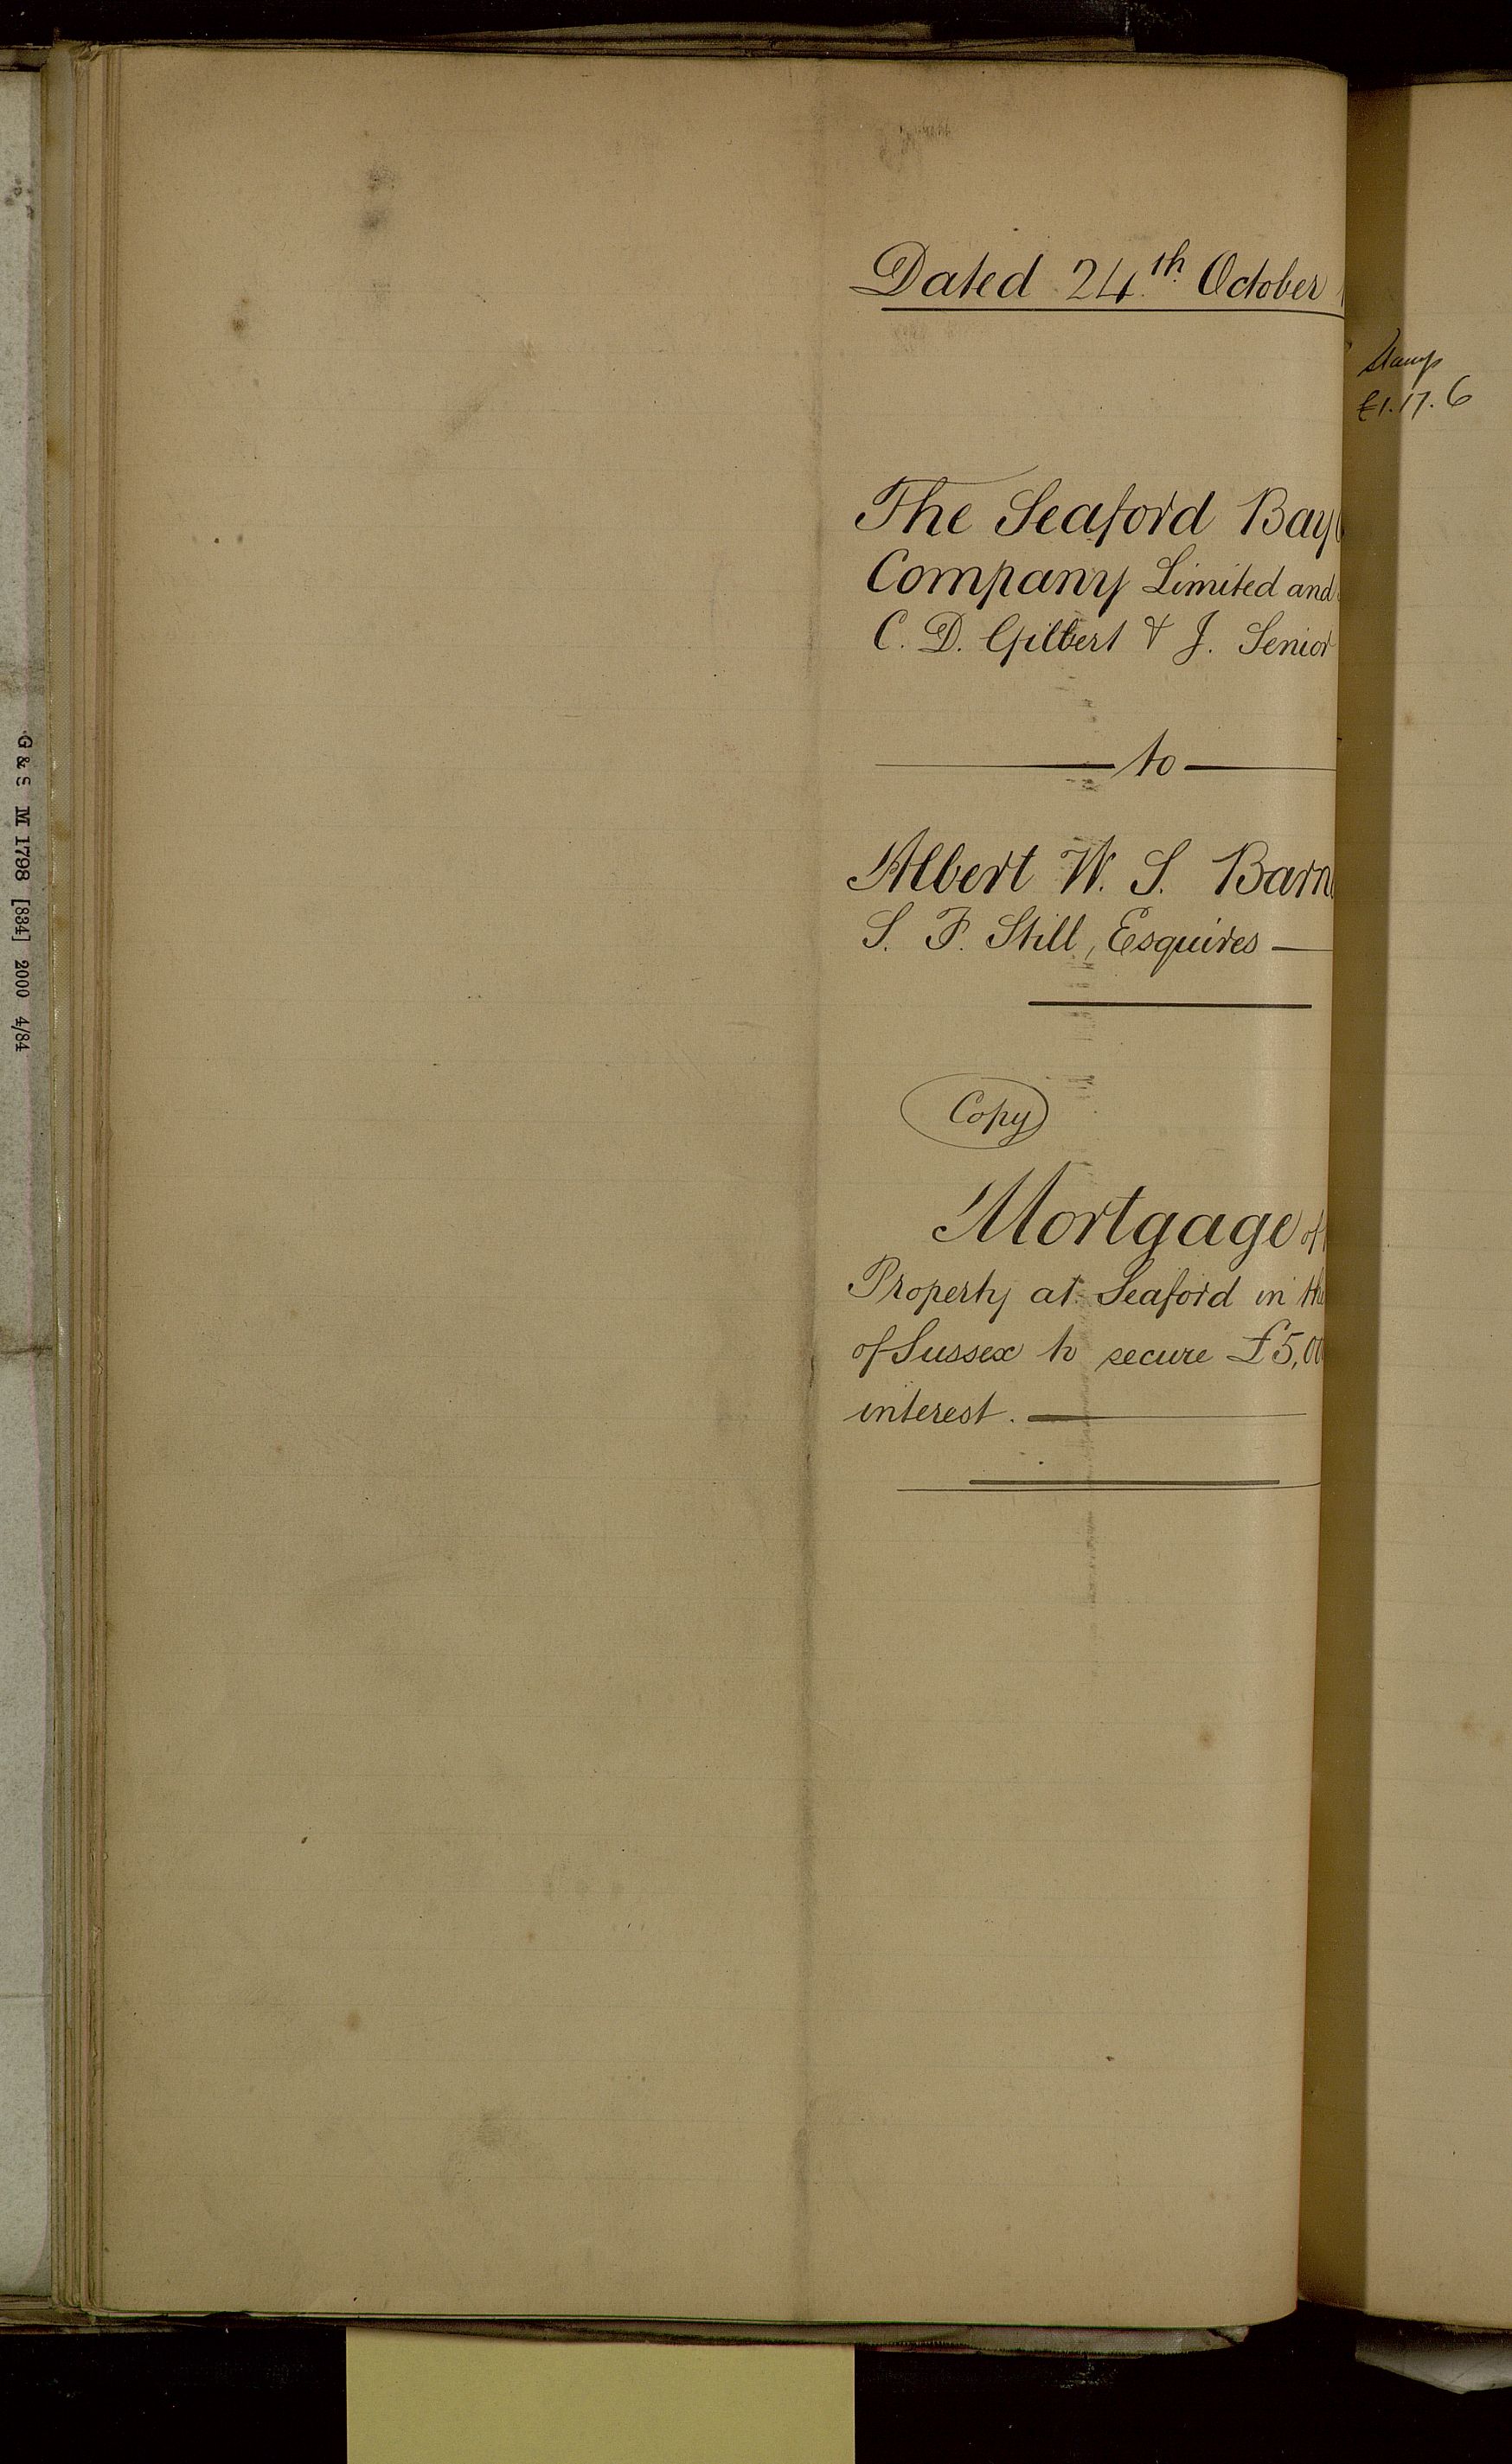 Dated 24th October
The Seaford Bay
Company Limited and
C. D. Gilbert & J. Senior
to
Albert W. S. Barn
S. F. Still, Esquires
Copy
Mortgage of
Property at Seaford in the
of Sussex to secure £5,00
interest.
Stamp
£1.17.6
G & S M 1798 [834] 2000 4/84